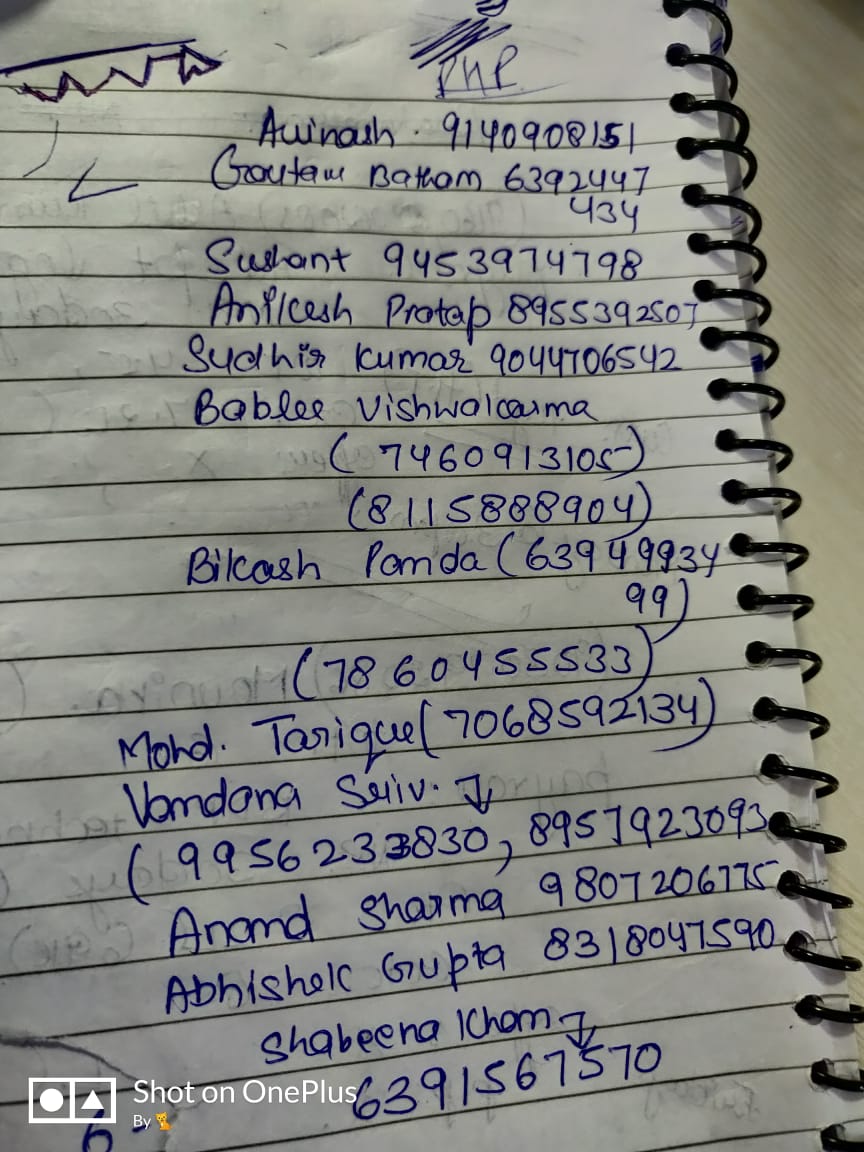 PHP
Awinash . 9140908151
Goutam Batham 6392447
434
Sushant 9453974798
Anilkesh Pratap 8955392507
Sudhir Kumar 9044706542
Bablee Vishwalkarma
( 7460913105)
(8115888904)
Bikash Panda (63949934
99)
(7860455533)
Mohd. Tarique (7068592134)
Vandana Sriv. ↓
( 9956233830, 8957923093
Anand Sharma 9807206775
Abhishek Gupta 8318047590
Shabeena Khan ↓
6391567570
Shot on OnePlus
By 🐈
6